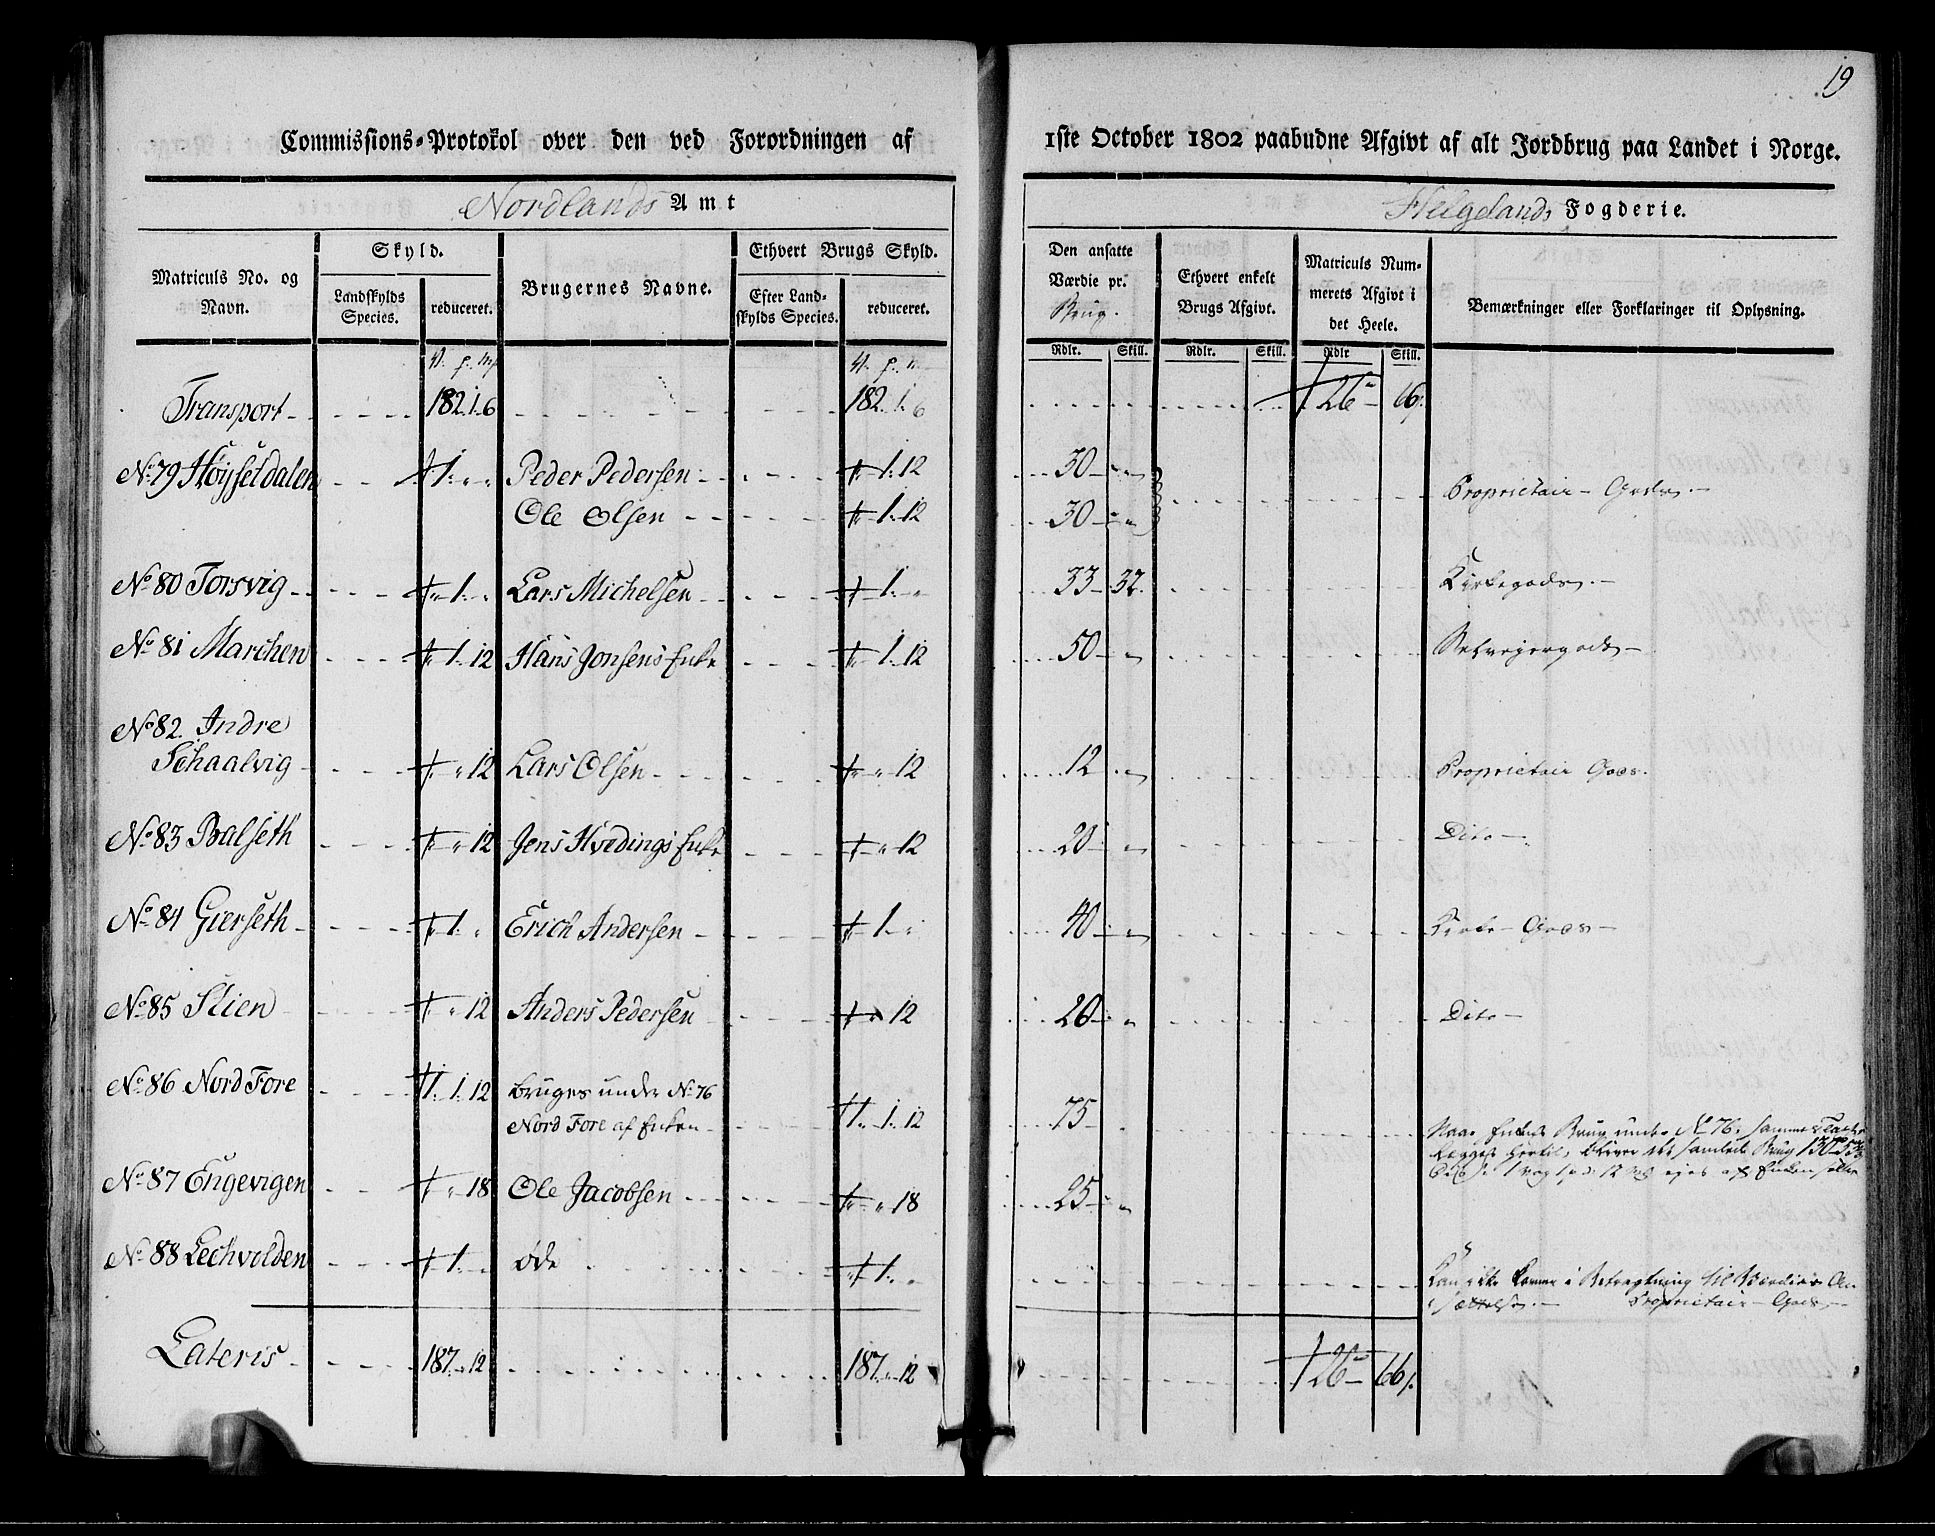 19
Commissions-Protokol over den ved Forordningen af 1ste October 1802 paabudne Afgivt af alt Jordbrug paa Landet i Norge.
Nordlands Amt Helgelands Fogderie.
Matriculs No. og Navn.
Skyld.
Landskylds Species.
reduceret.
Brugernes Navne.
Ethvert Brugs Skyld.
Efter Landskylds Species.
reduceret.
Den ansatte Værdie pr. Brug.
Ethvert enkelt Brugs Afgivt.
Matriculs Nummerets Afgivt i det Heele.
Bemærkninger eller Forklaringer til Oplysning.
Rdlr. Skill. Rdlr. Skill. Rdlr Skill.
Transport 182. 1. 6 182. 1. 6 126 66
No 79 Høysetdalen 1. Peder Pedersen 1. 12 30 Proprietair Gods
Ole Olsen 1. 12 30
No 80 Torsvig 1. Lars Michelsen 1. 33 32. Kirkegods
No 81 Marchen 1. 12 Hans Jonsens Enke 1. 12 50 Selveyergods
No 82. Indre
Schaalvig 12 Lars Olsen 12 12 Proprietair Gods.
No 83 Balseth 12 Jens Hvedings Enke 12 20 Dito
No 84 Gierseth 1. Erich Andersen 1. 40 Kirke Gods
No 85 Stien 12 Anders Pedersen 12 20 Dito
No 86 Nord Fore 1. 1. 12 bruges under No 76
Nord Fore af Enken 1. 1. 12 75
Naar Enkens Brug under No 76. samme
lægges hertil, bliver det samlede Brug 130
1 vog 1 pd. 12 mk ejes af Enken selv
No 87 Engevigen 18 Ole Jacobsen 18 25
No 88 Lechvolden 1. øde 1.
Kan ikke komme i Betragtning til Værdies An-
sættelse. Proprietair Gods
Lateris 187. 12 187. 12 126 66